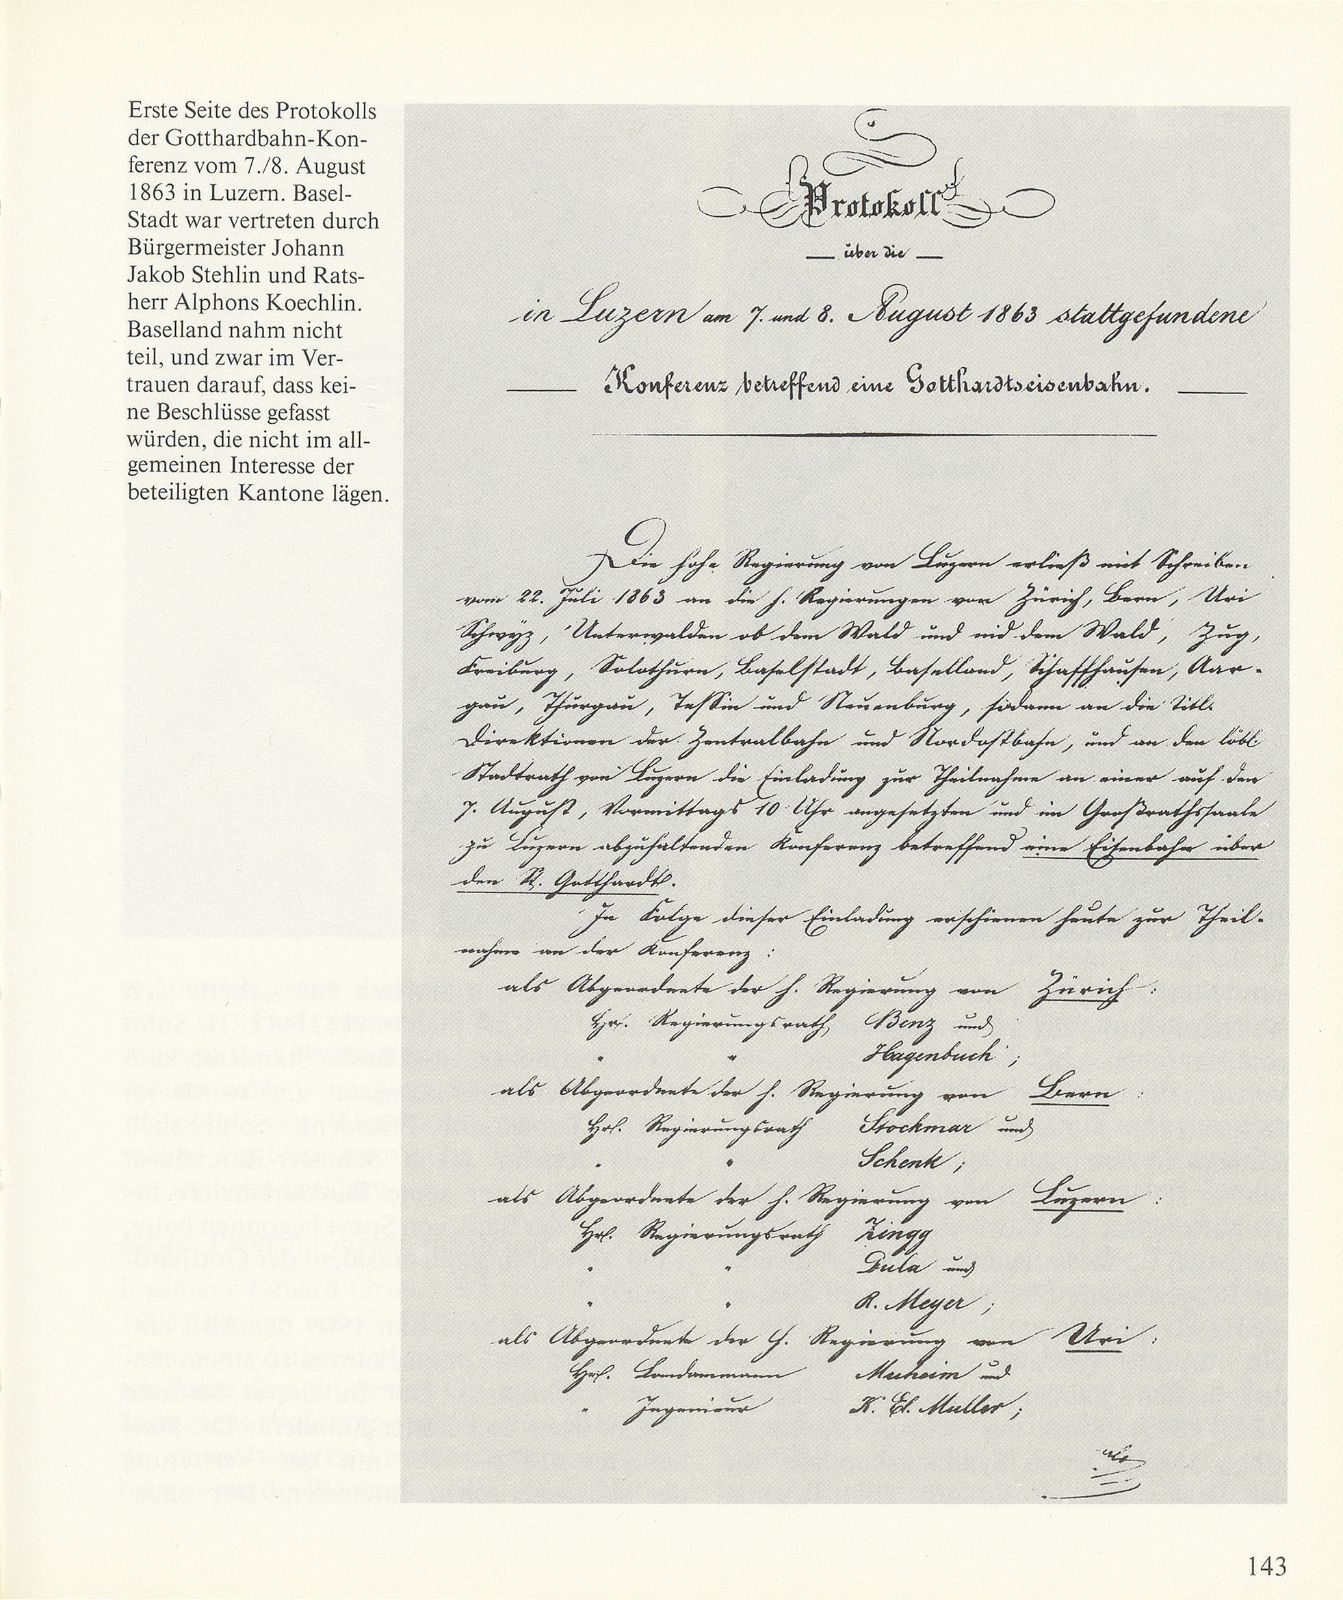 Erste Seite des Protokolls
der Gotthardbahn-Kon-
ferenz vom 7./8. August
1863 in Luzern. Basel-
Stadt war vertreten durch
Bürgermeister Johann
Jakob Stehlin und Rats-
herr Alphons Koechlin.
Baselland nahm nicht
teil, und zwar im Ver-
trauen darauf, dass kei-
ne Beschlüsse gefasst
würden, die nicht im all-
gemeinen Interesse der
beteiligten Kantone lägen.
Protokoll
— über die —
in Luzern am 7. und 8. August 1863 stattgefundene
— Konferenz betreffend eine Gotthardtseisenbahn. —
Die hohe Regierung von Luzern erließ mit Schreiben
vom 22. Juli 1863 an die h. Regierungen von Zürich, Bern, Uri
Schwyz, Unterwalden ob dem Wald und nid dem Wald, Zug,
Freiburg, Solothurn, Baselstadt, Baselland, Schaffhausen, Aar-
gau, Thurgau, Tessin und Neuenburg, sodann an die Titl.
Direktionen der Zentralbahn und Nordostbahn, und an den löbl.
Stadtrath von Luzern die Einladung zur Theilnahme an einer auf den
7. August, Vormittags 10 Uhr angesetzten und im Großrathssaale
zu Luzern abzuhaltenden Konferenz betreffend eine Eisenbahn über
den St. Gotthardt.
In Folge dieser Einladung erschienen heute zur Theil-
nahme an der Konferenz:
als Abgeordnete der h. Regierung von Zürich:
Hr. Regierungsrath Benz und
" " Hagenbuch;
als Abgeordnete der h. Regierung von Bern:
Hr. Regierungsrath Stockmar und
" " Schenk;
als Abgeordnete der h. Regierung von Luzern:
Hr. Regierungsrath Zingg
" " Dula und
" " R. Meyer;
als Abgeordnete der h. Regierung von Uri:
Hr. Landammann Muheim und
" Ingenieur K. E. Müller;
als
143